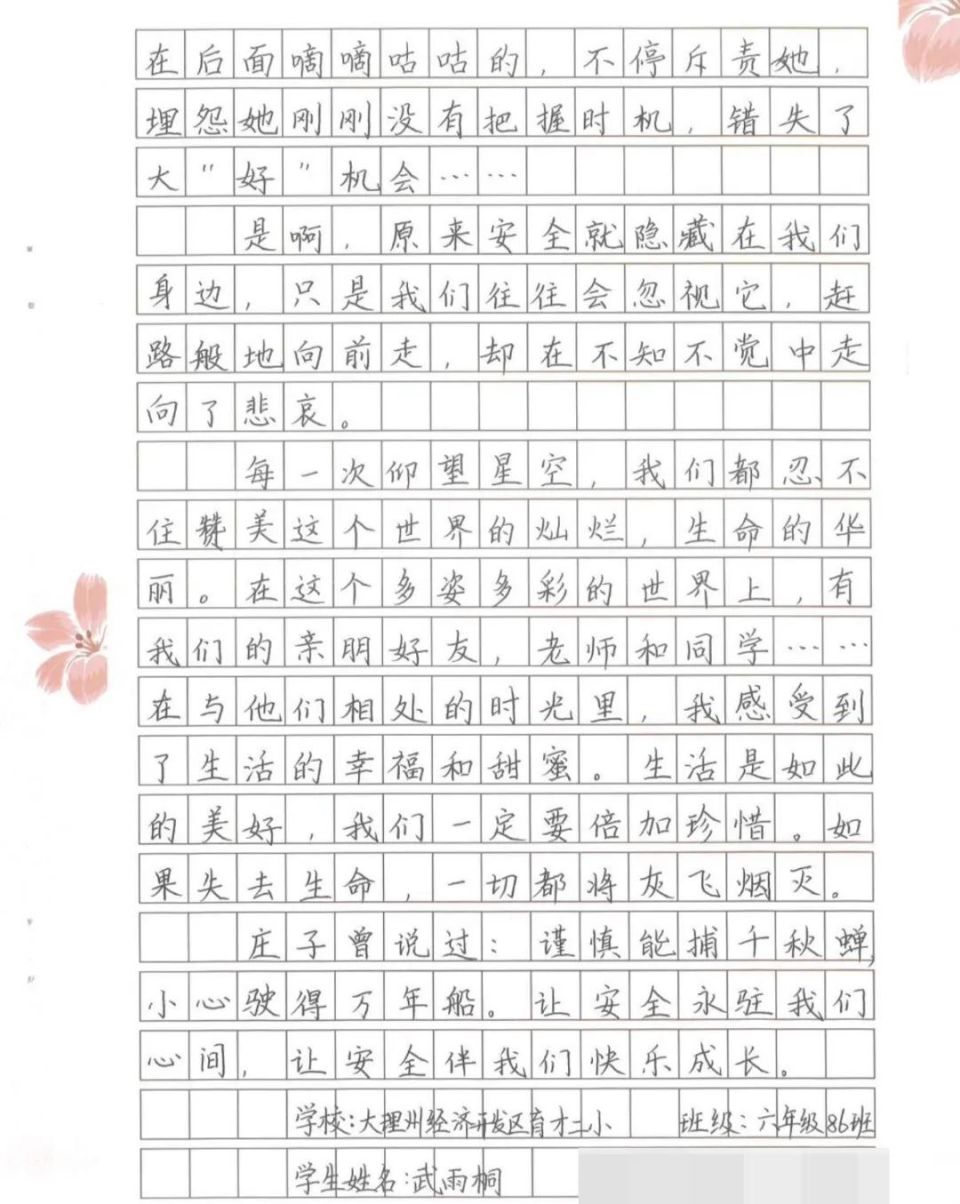 在后面嘀嘀咕咕的，不停斥责她，
埋怨她刚刚没有把握时机，错失了
大“好”机会……
是啊，原来安全就隐藏在我们
身边，只是我们往往会忽视它，赶
路般地向前走，却在不知不觉中走
向了悲哀。
每一次仰望星空，我们都忍不
住赞美这个世界的灿烂，生命的华
丽。在这个多姿多彩的世界上，有
我们的亲朋好友，老师和同学……
在与他们相处的时光里，我感受到
了生活的幸福和甜蜜。生活是如此
的美好，我们一定要倍加珍惜。如
果失去生命，一切都将灰飞烟灭。
庄子曾说过：谨慎能捕千秋蝉，
小心驶得万年船。让安全永驻我们
心间，让安全伴我们快乐成长。
学校：大理州经济开发区育才二小 班级：六年级86班
学生姓名：武雨桐